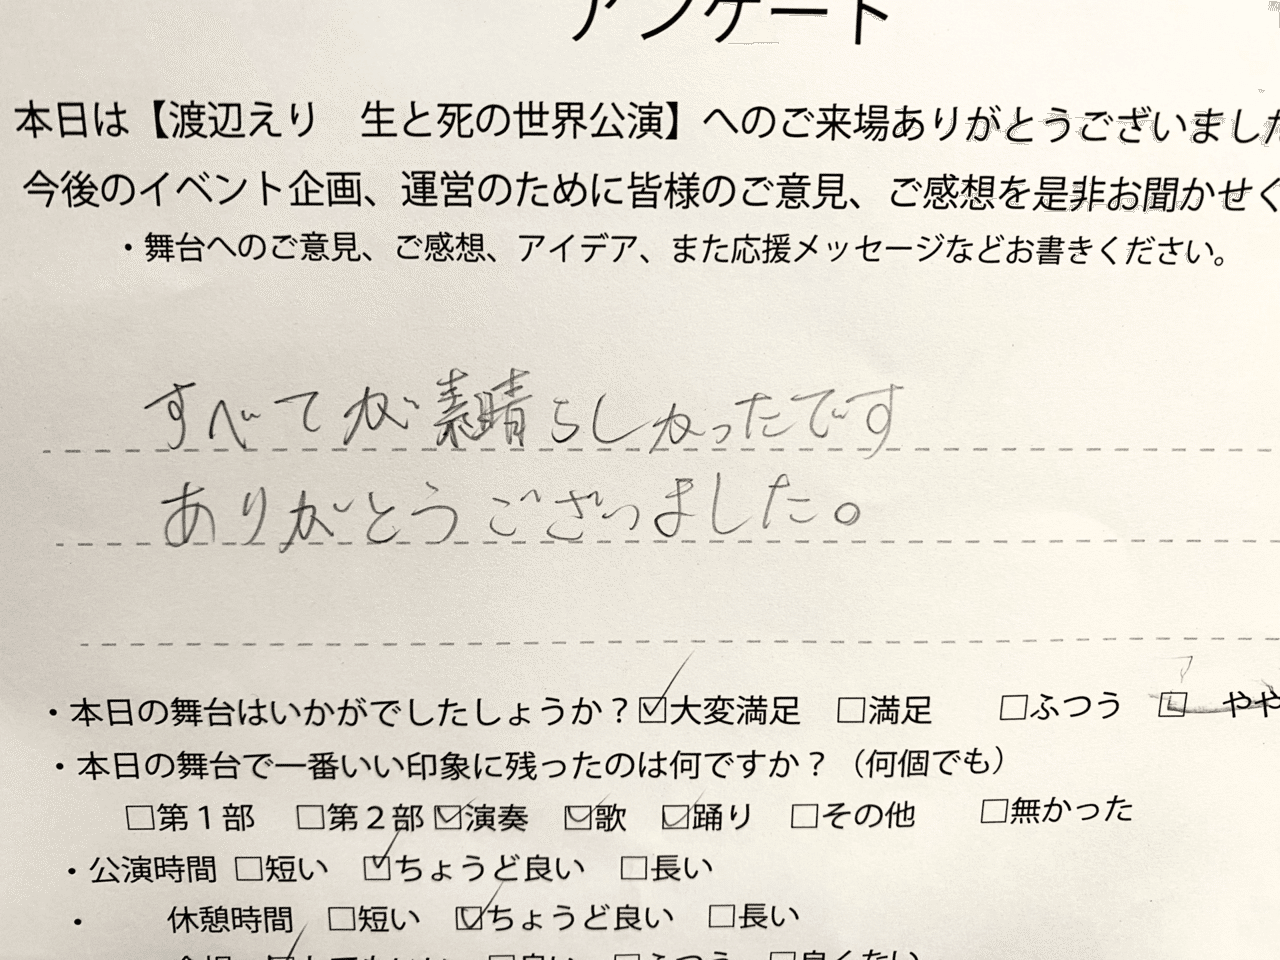 アンケート
本日は【渡辺えり　生と死の世界公演】へのご来場ありがとうございました
今後のイベント企画、運営のために皆様のご意見、ご感想を是非お聞かせく
・舞台へのご意見、ご感想、アイデア、また応援メッセージなどお書きください。
すべてが素晴らしかったです
ありがとうございました。
・本日の舞台はいかがでしたしょうか？☑大変満足　□満足　□ふつう　□　やや
・本日の舞台で一番いい印象に残ったのは何ですか？（何個でも）
□第１部　□第２部 ☑演奏　☑歌　☑踊り　□その他　□無かった
・公演時間 □短い　☑ちょうど良い　□長い
・　休憩時間　□短い　☑ちょうど良い　□長い